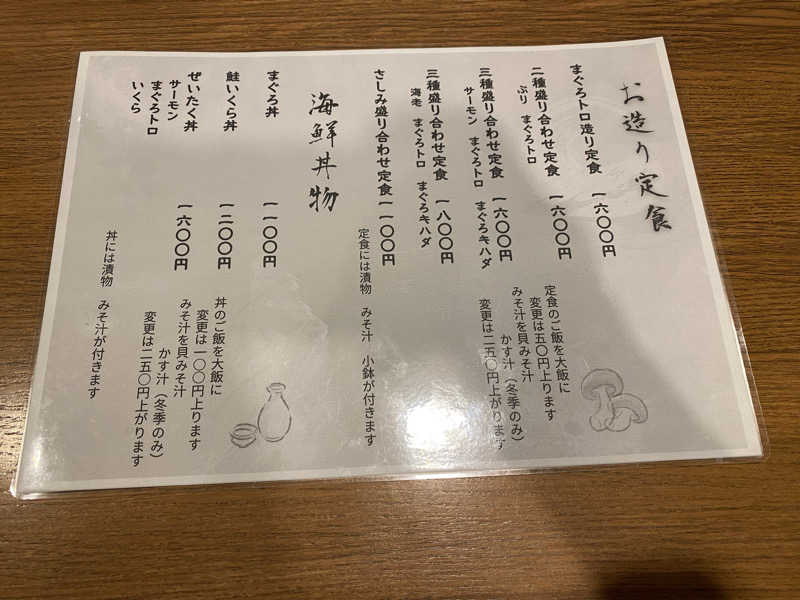 お造り定食
まぐろトロ造り定食 一六〇〇円
二種盛り合わせ定食 一六〇〇円
ぶり まぐろトロ
三種盛り合わせ定食 一六〇〇円
サーモン まぐろトロ まぐろキハダ
三種盛り合わせ定食 一八〇〇円
海老 まぐろトロ まぐろキハダ
さしみ盛り合わせ定食 一一〇〇円
定食のご飯を大飯に
変更は五〇円上ります
みそ汁を貝みそ汁
かす汁（冬季のみ）
変更は二五〇円上がります
定食には漬物 みそ汁 小鉢が付きます
海鮮丼物
まぐろ丼 一一〇〇円
鮭いくら丼 一二〇〇円
ぜいたく丼 一六〇〇円
サーモン
まぐろトロ
いくら
丼のご飯を大飯に
変更は一〇〇円上ります
みそ汁を貝みそ汁
かす汁（冬季のみ）
変更は二五〇円上がります
丼には漬物 みそ汁が付きます